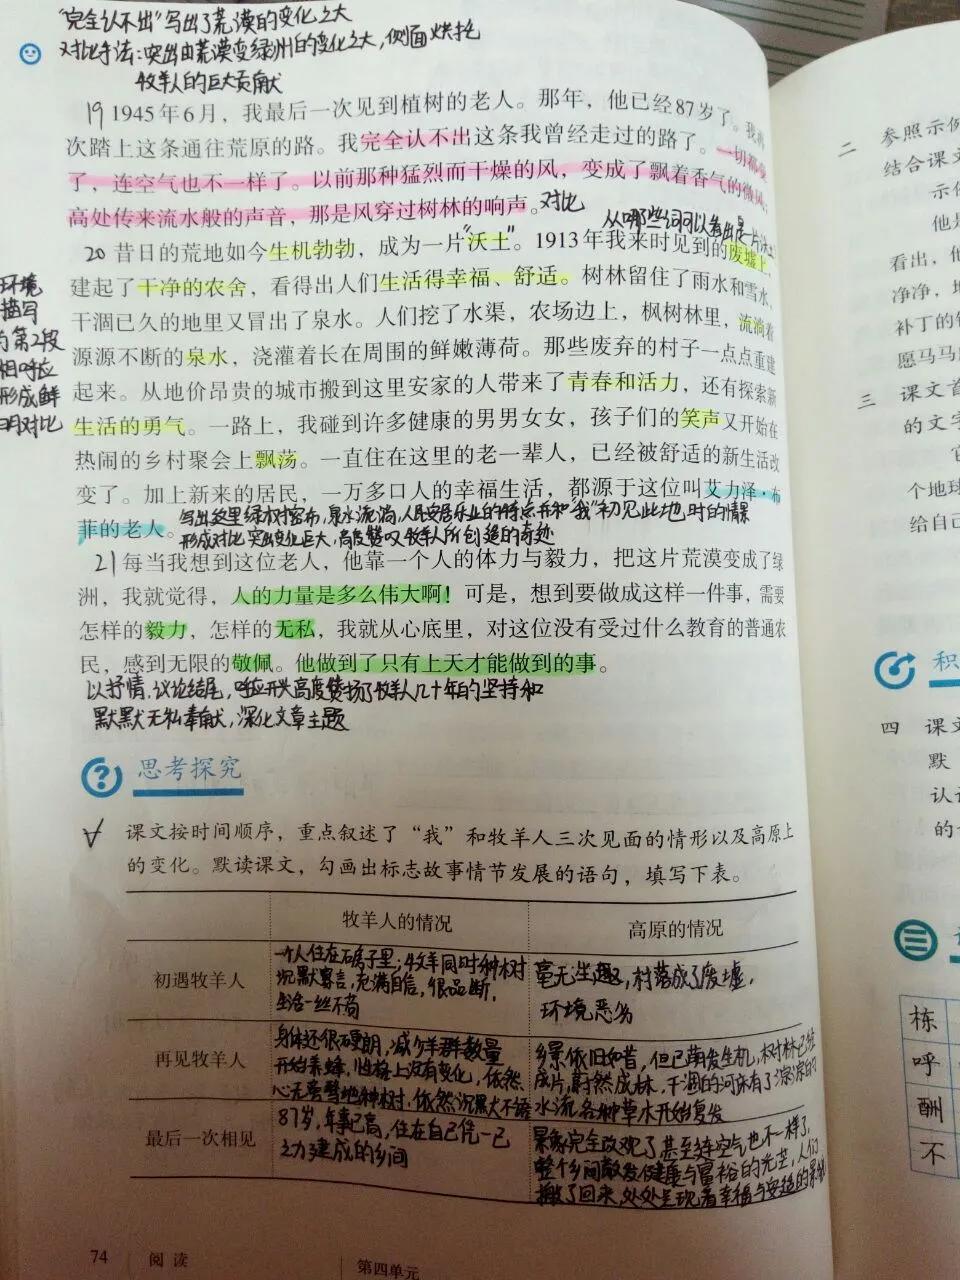 "完全认不出"写出了荒漠的变化之大
对比手法:突出由荒漠变绿洲的变化之大,侧面烘托
牧羊人的巨大贡献
19 1945年6月，我最后一次见到植树的老人。那年，他已经87岁了。我再
次踏上这条通往荒原的路。我完全认不出这条我曾经走过的路了。一切都变
了，连空气也不一样了。以前那种猛烈而干燥的风，变成了飘着香气的微风；
高处传来流水般的声音，那是风穿过树林的响声。
对比
从哪些词可以看出是一片沃土
20 昔日的荒地如今生机勃勃，成为一片"沃土"。1913年我来时见到的废墟上，
建起了干净的农舍，看得出人们生活得幸福、舒适。树林留住了雨水和雪水，
干涸已久的地里又冒出了泉水。人们挖了水渠，农场边上，枫树林里，流淌着
源源不断的泉水，浇灌着长在周围的鲜嫩薄荷。那些废弃的村子一点点重建
起来。从地价昂贵的城市搬到这里安家的人带来了青春和活力，还有探索新
生活的勇气。一路上，我碰到许多健康的男男女女，孩子们的笑声又开始在
热闹的乡村聚会上飘荡。一直住在这里的老一辈人，已经被舒适的新生活改
变了。加上新来的居民，一万多口人的幸福生活，都源于这位叫艾力泽·布
菲的老人。
环境
描写
与第2段
相呼应
形成鲜
明对比
写出这里绿树密布,泉水流淌,人民安居乐业的特点并和"我"初见此地时的情景
形成对比突出变化巨大,高度赞叹牧羊人所创造的奇迹
21 每当我想到这位老人，他靠一个人的体力与毅力，把这片荒漠变成了绿
洲，我就觉得，人的力量是多么伟大啊！可是，想到要做成这样一件事，需要
怎样的毅力，怎样的无私，我就从心底里，对这位没有受过什么教育的普通农
民，感到无限的敬佩。他做到了只有上天才能做到的事。
以抒情、议论结尾,呼应开头高度赞扬了牧羊人几十年的坚持和
默默无私奉献,深化文章主题
思考探究
一 课文按时间顺序，重点叙述了“我”和牧羊人三次见面的情形以及高原上
的变化。默读课文，勾画出标志故事情节发展的语句，填写下表。
牧羊人的情况
高原的情况
初遇牧羊人
一个人住在石房子里;牧羊同时种树
沉默寡言,充满自信,很品断,
生活一丝不苟
毫无生趣,村落成了废墟,
环境恶劣
再见牧羊人
身体还很硬朗,减少羊群数量
开始养蜂,性格上没有变化,依然
心无旁骛地种树,依然沉默不语
乡景依旧如昔,但已萌发生机,树林已经
成片,蔚然成林,干涸的河床有了淙淙的
水流,各种草木开始复发
最后一次相见
87岁,年事已高,住在自己凭一己
之力建成的乡间
景象完全改观了,甚至连空气也不一样了,
整个乡间散发健康与富裕的光芒,人们
搬了回来,处处呈现着幸福与安适的景象
74
阅读
第四单元
二
参照示例
结合课文
示例
他是
看出，他
净净，
补丁的
愿马马
三
课文首
的文字
个地球
给自己
积
四
课文
默
认
的
栋
呼
酬
不